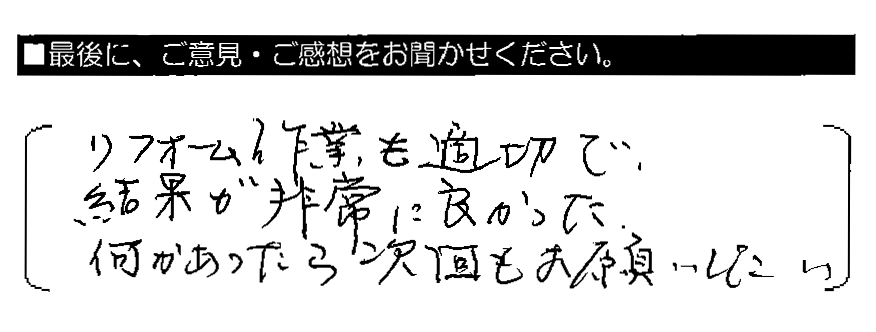 ■最後に、ご意見・ご感想をお聞かせください。
リフォーム作業も適切で、
結果が非常に良かった。
何かあったら次回もお願いしたい